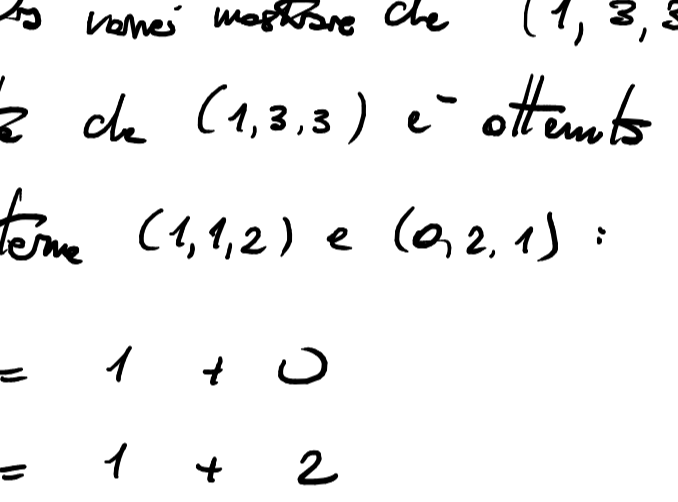 vorrei mostrare che (1, 3, 3
che (1,3,3) e- ottenuto
terne (1,1,2) e (0,2,1) :
= 1 + 0
= 1 + 2